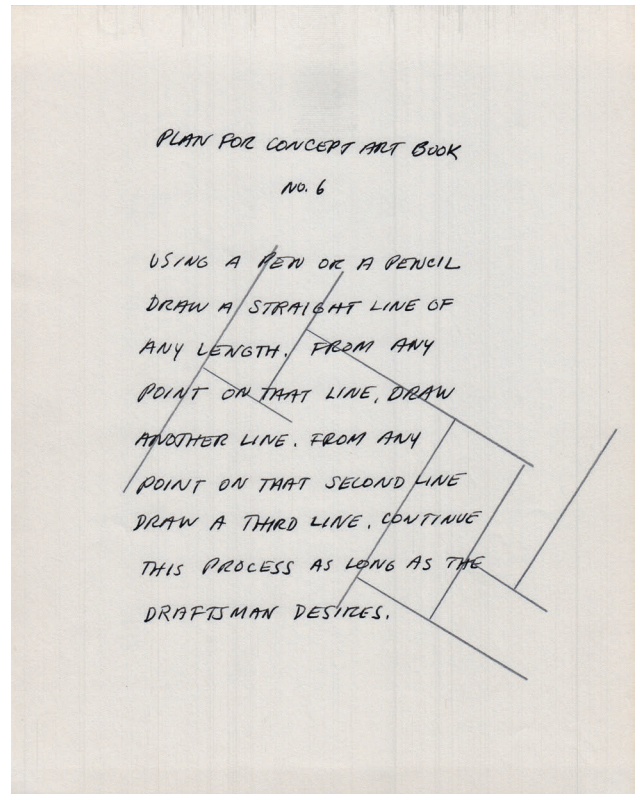 PLAN FOR CONCEPT ART BOOK
NO. 6
USING A PEN OR A PENCIL
DRAW A STRAIGHT LINE OF
ANY LENGTH. FROM ANY
POINT ON THAT LINE, DRAW
ANOTHER LINE. FROM ANY
POINT ON THAT SECOND LINE
DRAW A THIRD LINE. CONTINUE
THIS PROCESS AS LONG AS THE
DRAFTSMAN DESIRES.